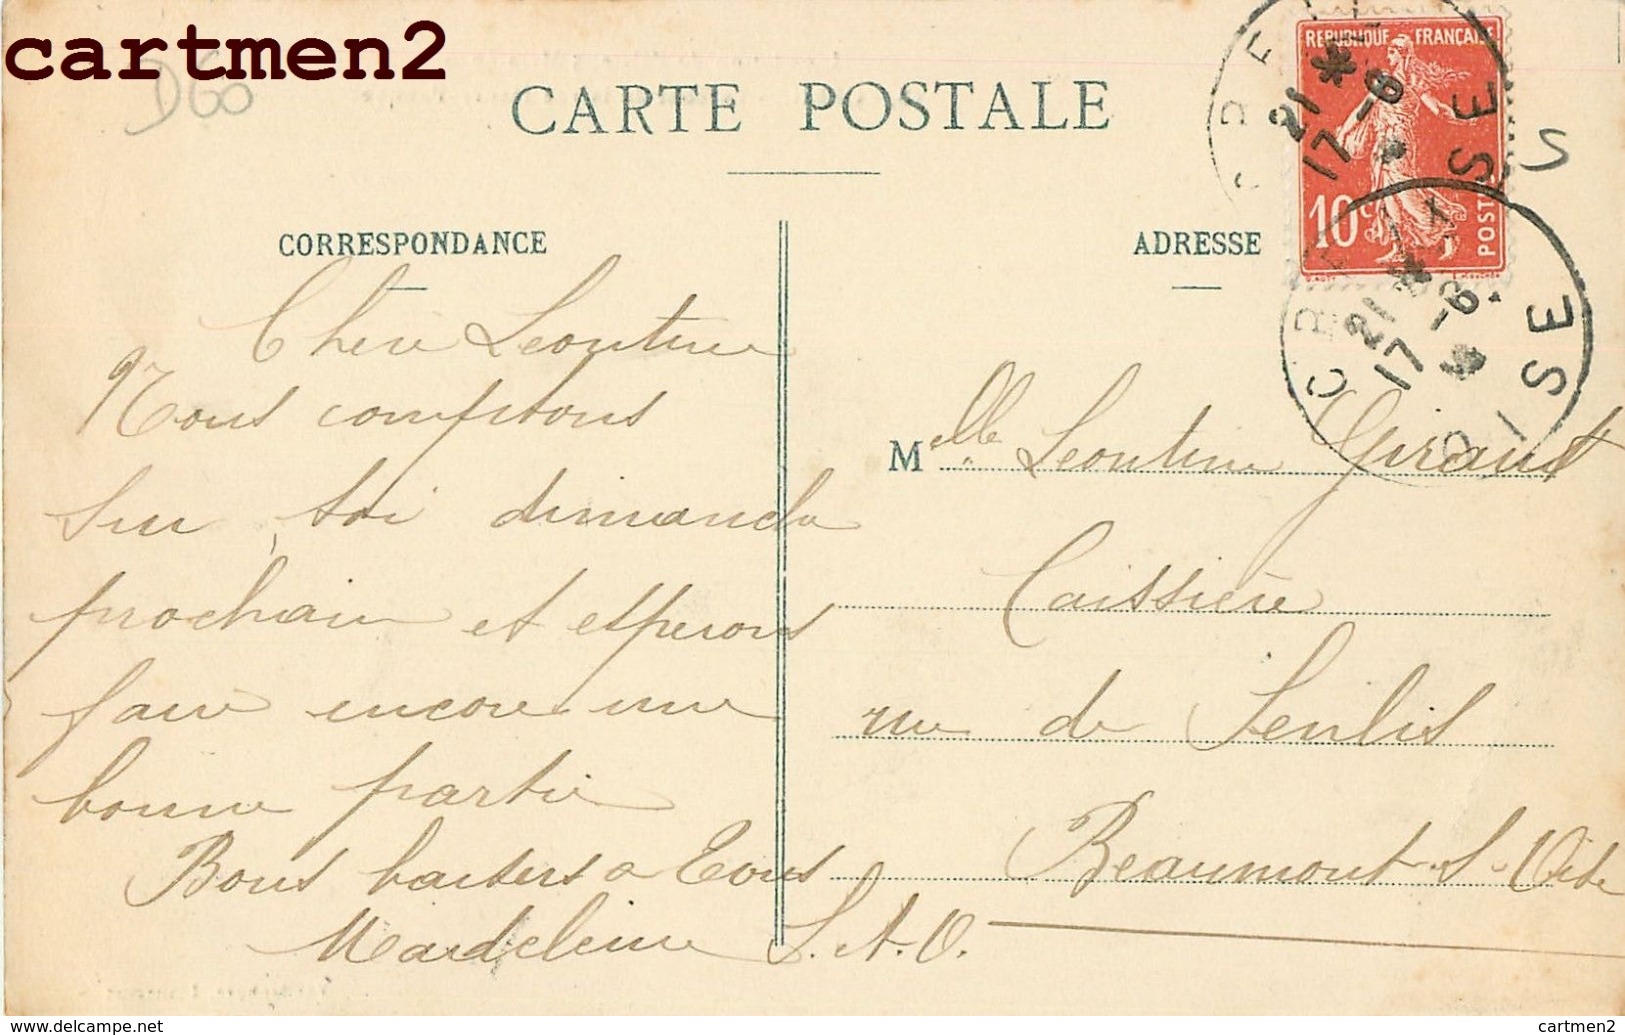 cartmen2
D60
CARTE POSTALE
CORRESPONDANCE
Chère Leontine
Nous comptons
sur toi dimanche
prochain et esperons
faire encore une
bonne partie
Bons baisers a Tous
Madeleine
ADRESSE
REPUBLIQUE FRANÇAISE
10c
POSTES
CREIL
21 *
17 -6
OISE
CREIL
21 *
17 -6
OISE
S
Melle Leontine Giraud
Caissière
rue de Senlis
Beaumont S. Oise
S. et O.
www.delcampe.net
cartmen2